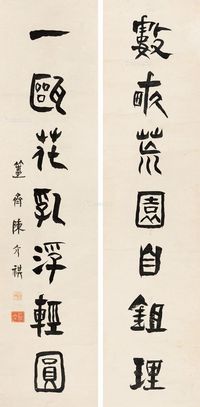 數畝荒園自鉏理
一甌花乳浮輕圓
簠齋陳介祺